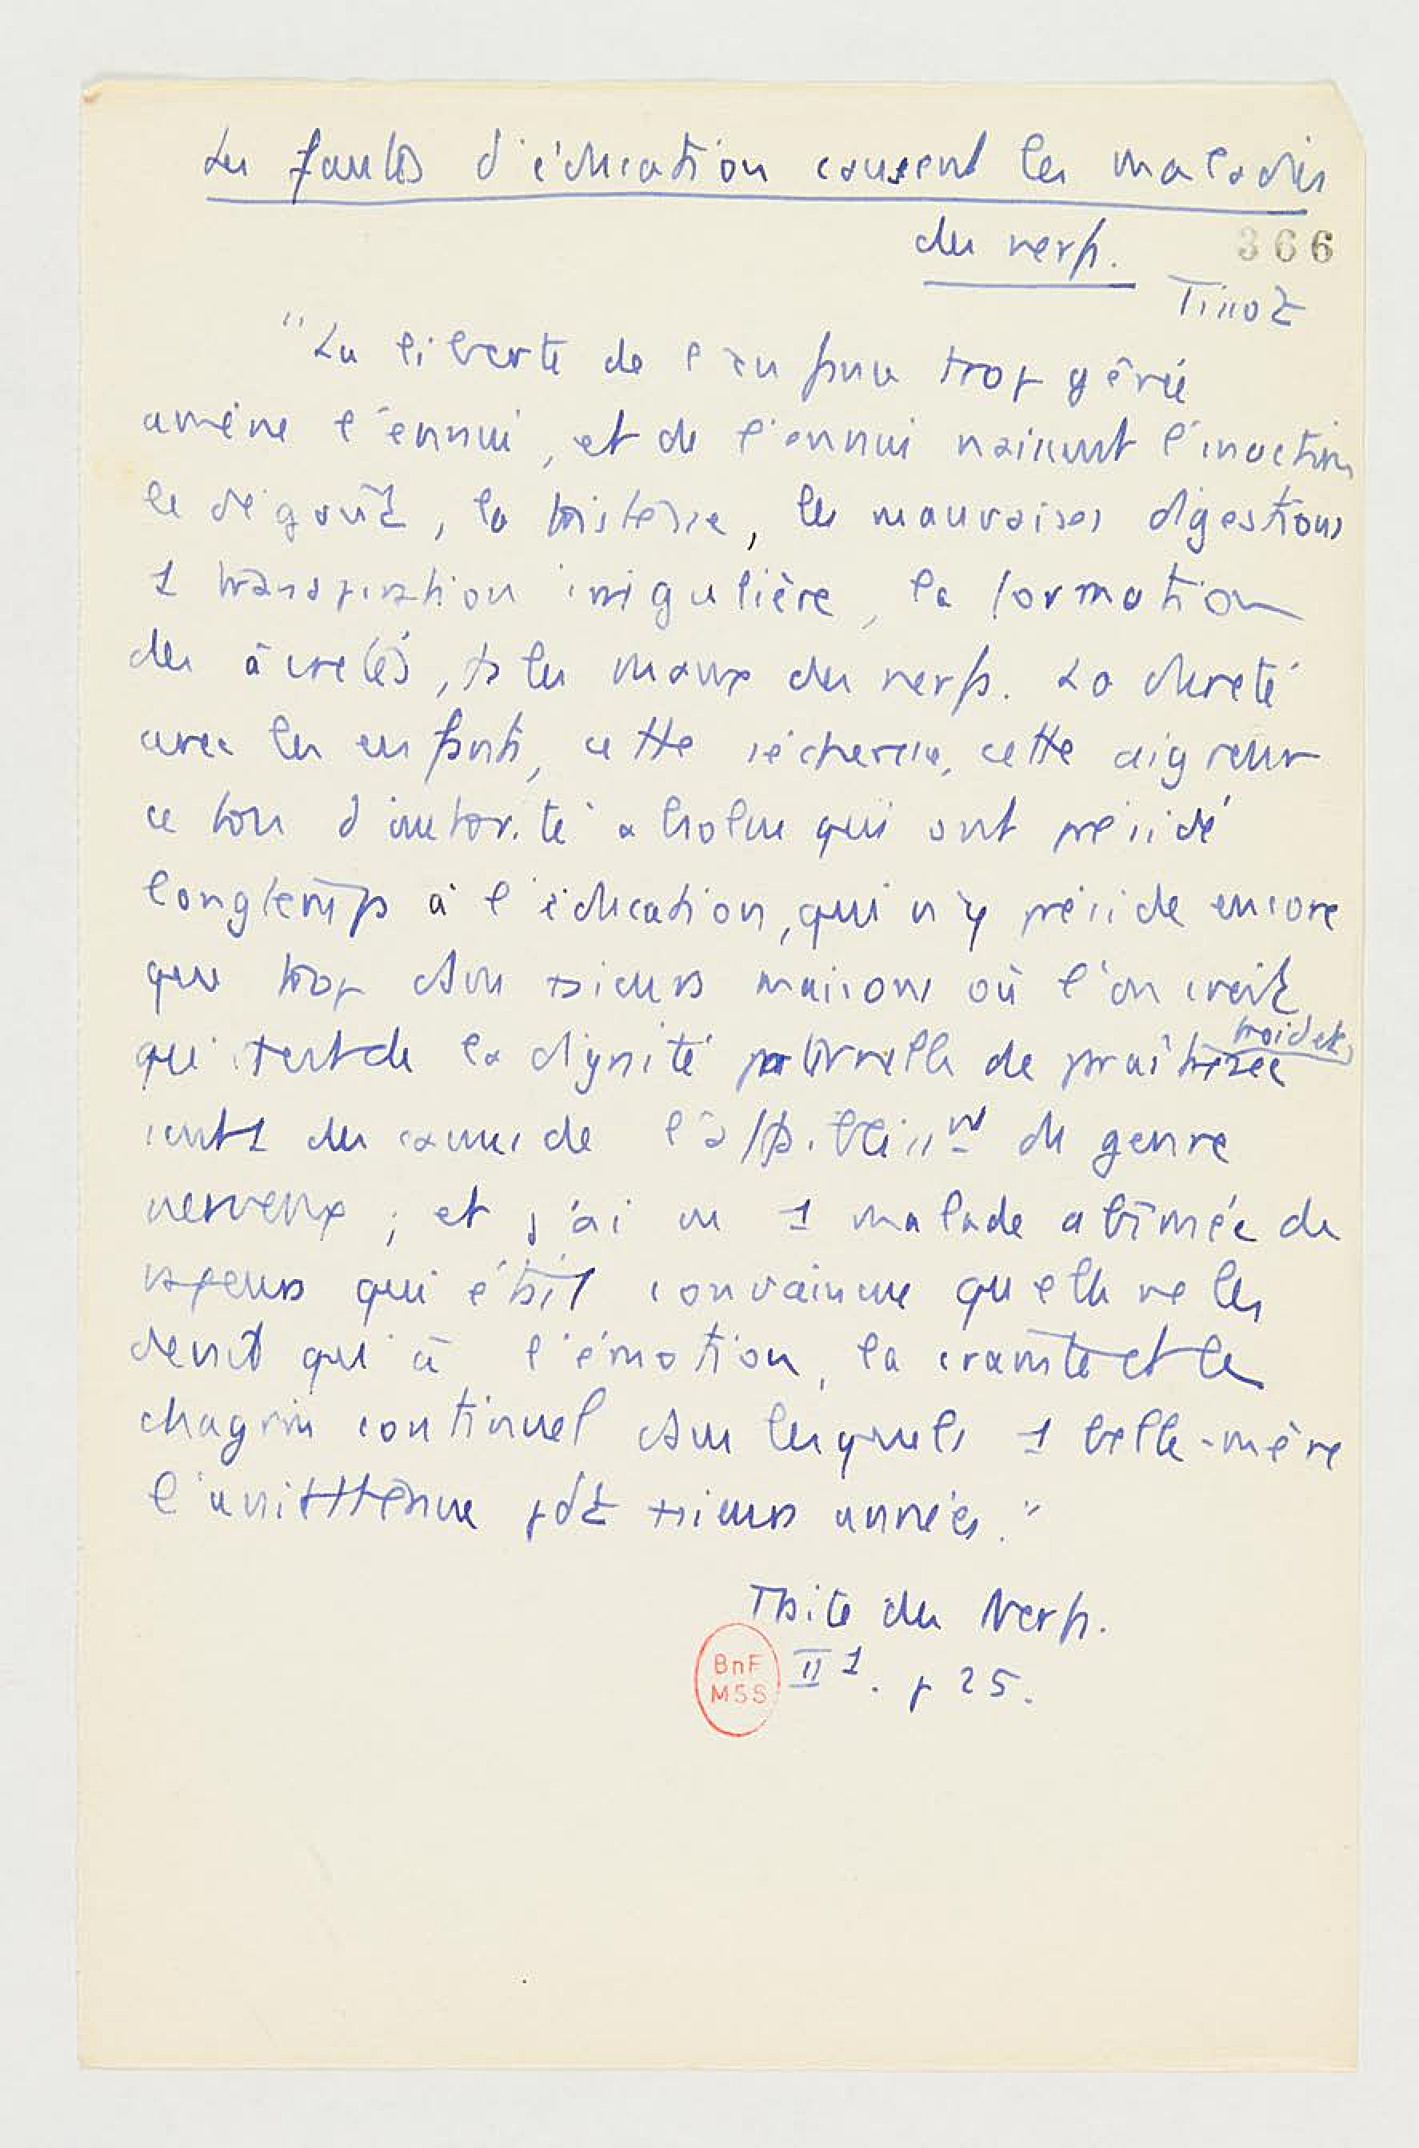 Les fautes d'éducation causent les maladies
des nerfs.
366
Tissot
"La liberté de l'enfance trop gênée
amène l'ennui, et de l'ennui naissent l'inaction
le dégoût, la tristesse, les mauvaises digestions
1 transpiration irrégulière, la formation
des âcretés, ts les maux des nerfs. La dureté
avec les enfants, cette sécheresse, cette aigreur
ce ton d'autorité absolue qui ont présidé
longtemps à l'éducation, qui n'y préside encore
que trop dans plusieurs maisons où l'on croit
qu'il est de la dignité paternelle de
froideur,
sont 1 des causes de du genre
nerveux ; et j'ai vu 1 malade abîmée de
vapeurs qui était convaincue qu'elle ne les
devait qu'à l'émotion, la crainte et le
chagrin continuel dans lesquels 1 belle-mère
l'avait tenue pdt plusieurs années."
Traité des Nerfs.
II 1. p 25.
BnF
MSS